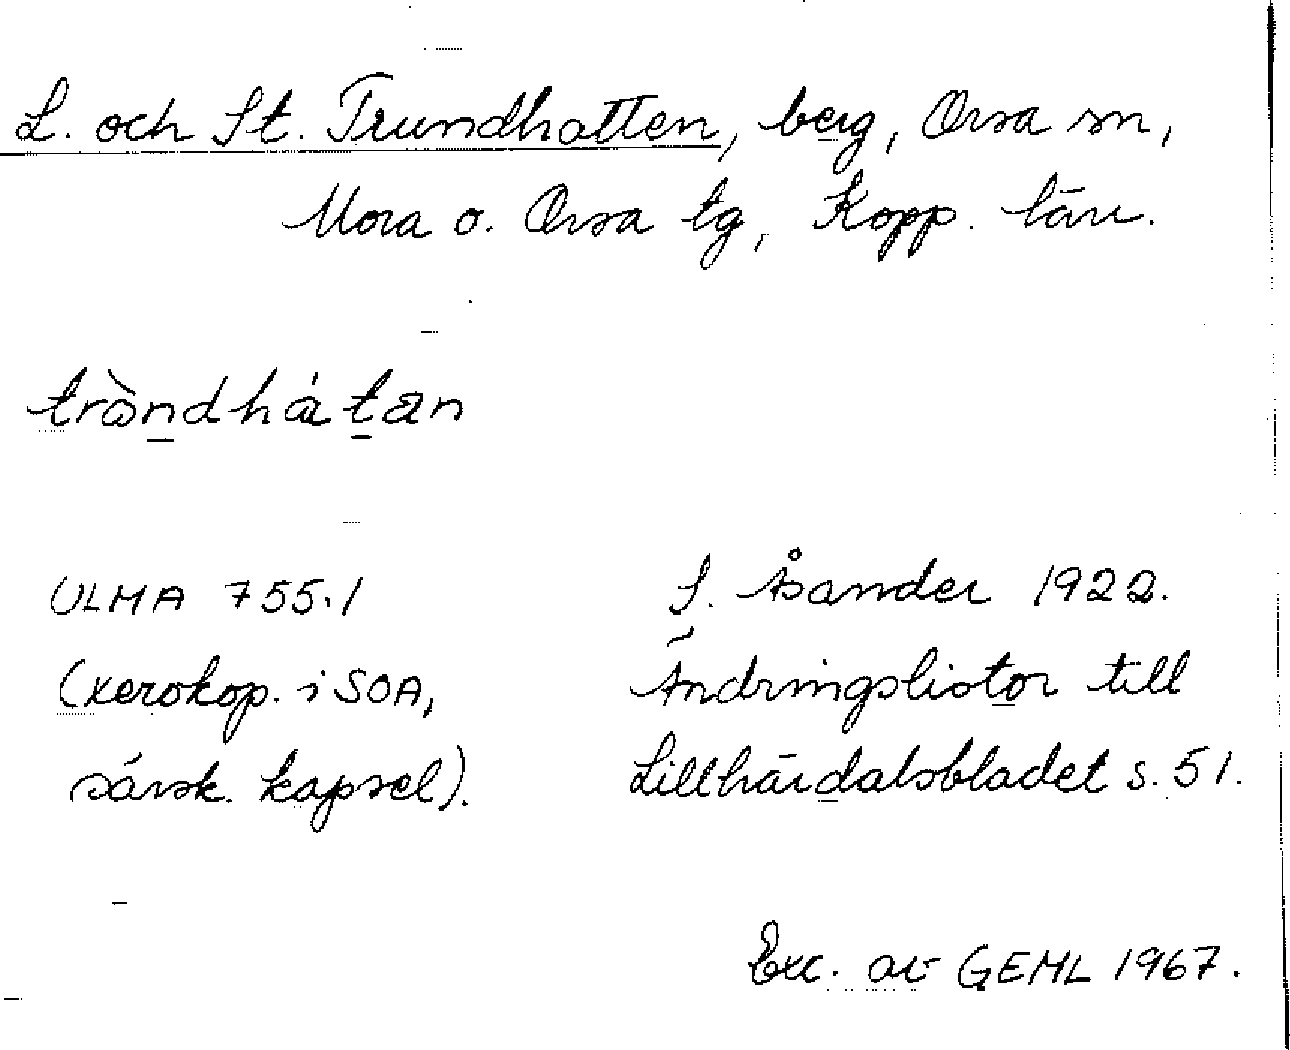 L. och St. Trundhatten, berg, Orsa sn,
Mora o. Orsa tg, Kopp. län.
trὼndhátan
ULMA 755.1
S. Åsander 1922.
(xerokop. i SOA,
Ändringslistor till
särsk. kapsel).
Lillhärdalsbladet s. 51.
Exc. av GEHL 1967.